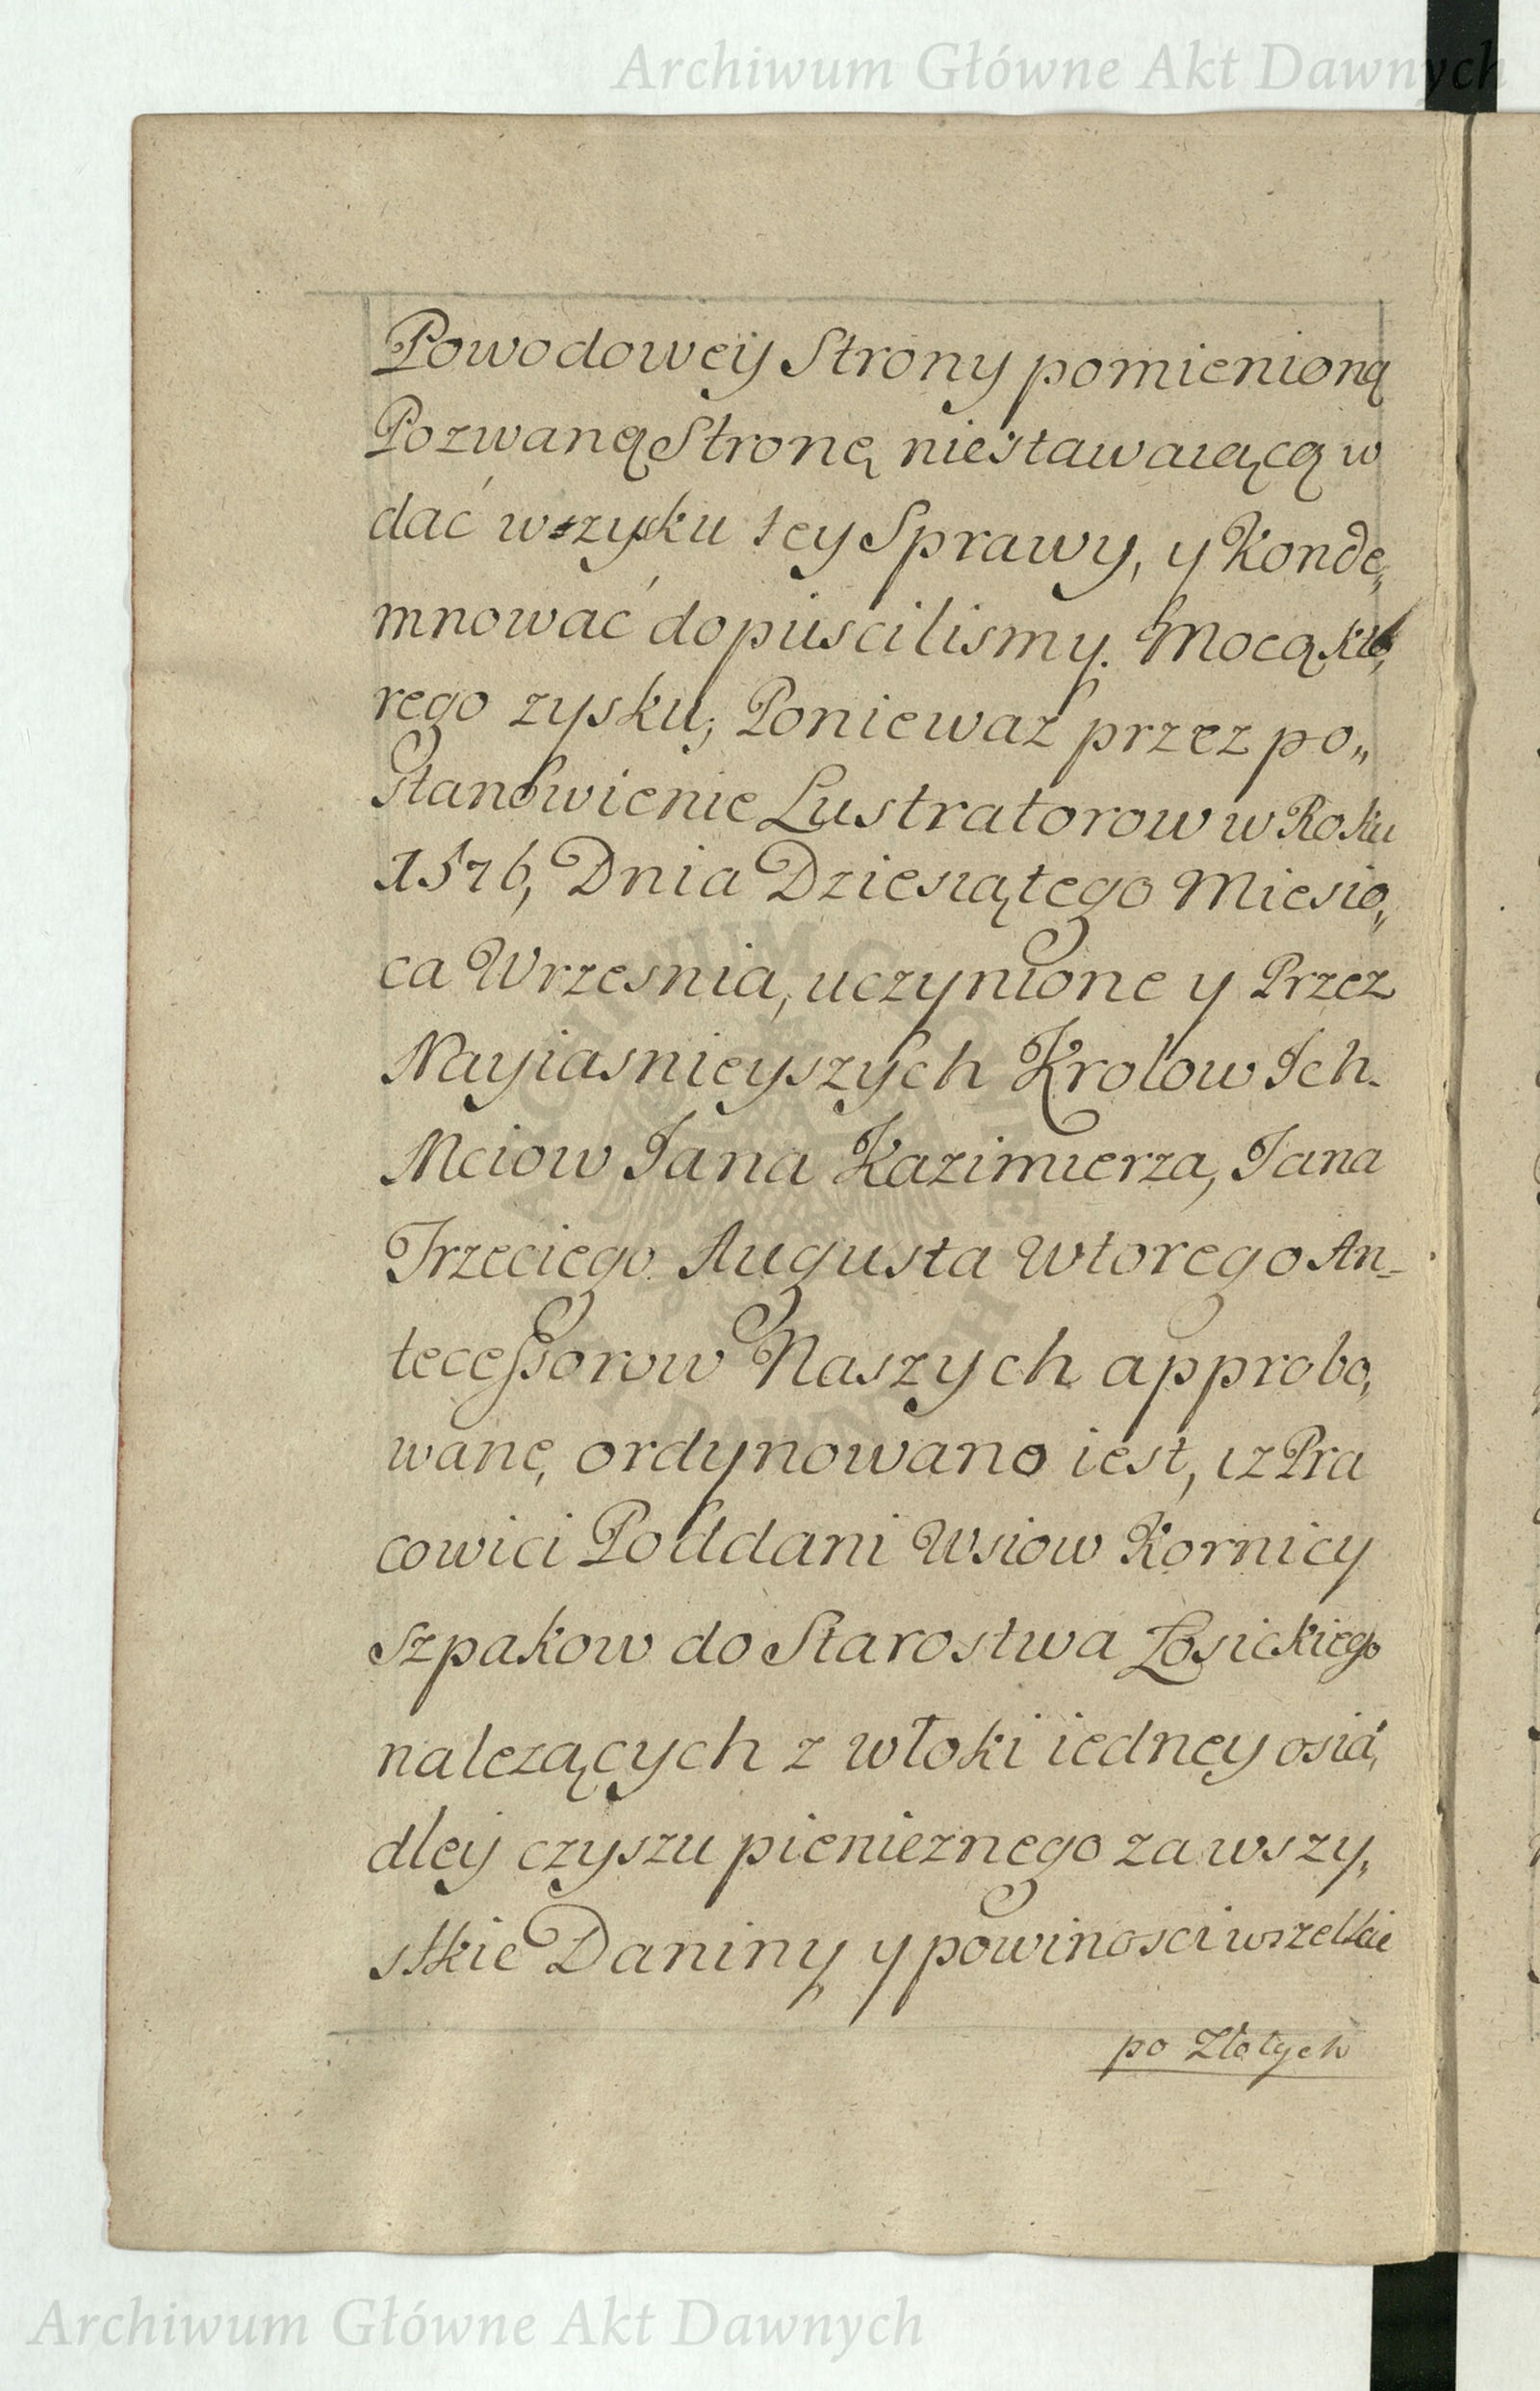 Archiwum Główne Akt Dawnych
Powodowey Strony pomienioną
Pozwaną Stronę niestawaiącą w
dać w zysku tey Sprawy, y Konde„
mnować dopuscilismy. Mocą któ„
rego zysku; Poniewaz przez po„
stanowienie Lustratorow w Roku
1576, Dnia Dziesiątego Miesią„
ca Wrzesnia, uczynione y Przez
Nayiasnieyszych Krolow Ich
Mciow Iana Kazimierza, Iana
Trzeciego Augusta Wtorego An-
tecessorow Naszych approbo,
wane, ordynowano iest, iz Pra
cowici Poddani Wsiow Kornicy
Szpakow do Starostwa Łosickiego
nalezących z włoki iedney osia,
dley czyszu pienieznego za wszy,
stkie Daniny y powinosci wszelkie
po Złotych
Archiwum Główne Akt Dawnych